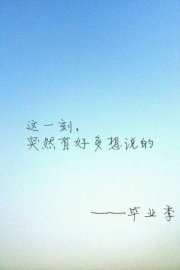 这一刻，
突然有好多想说的
——毕业季